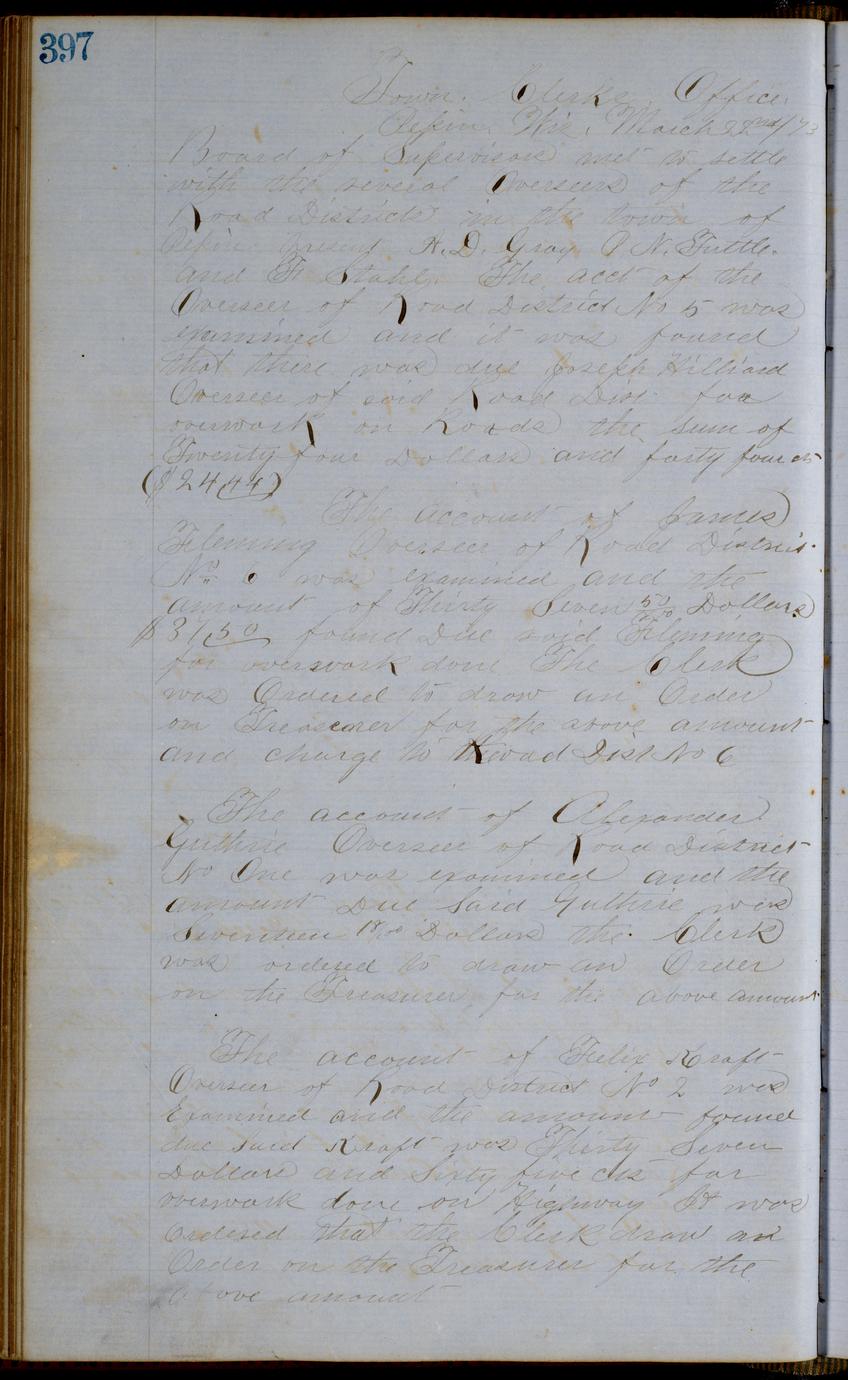 397
Town Clerks Office
Pepin Wis. March 22nd/73
Board of Supervisors met to settle
with the several Overseers of the
Road Districts in the town of
Pepin Present H. D. Gray P. N. Tuttle.
and F. Stahl. The acct of the
Overseer of Road District No 5 was
examined and it was found
that there was due Joseph Hilliard
Overseer of said Road Dist for
overwork on Roads the sum of
Twenty four Dollars and forty four cts
($24.44)
The account of James
Fleming Overseer of Road District
No 6 was examined and the
amount of Thirty Seven 50/100 Dollars
$37.50 found Due said Fleming
for overwork done The Clerk
was Ordered to draw an Order
on Treasurer for the above amount
and charge to Road Dist No 6
The account of Alexander
Guthrie Overseer of Road District
No One was examined and the
amount Due Said Guthrie was
Seventeen Dollars the Clerk
was ordered to draw an Order
on the Treasurer for the above amount
The account of Felix Kraft
Overseer of Road District No 2 was
Examined and the amount found
due said Kraft was Thirty Seven
Dollars and Sixty five cts for
overwork done on Highway It was
Ordered that the Clerk draw an
Order on the Treasurer for the
above amount